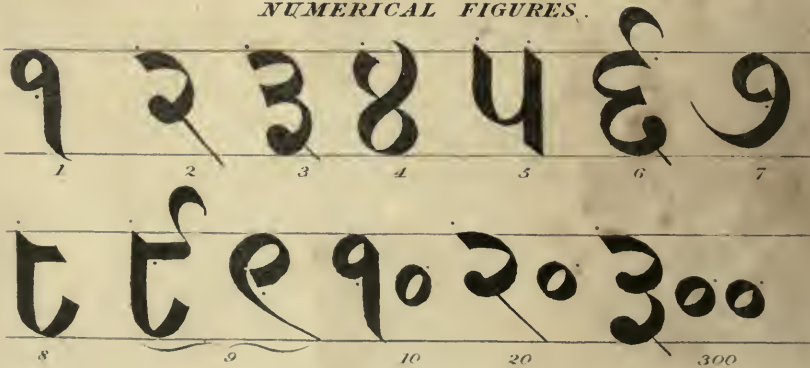 NUMERICAL FIGURES.
१ २ ३ ४ ५ ६ ७
1 2 3 4 5 6 7
८ ९ ९ १० २० ३००
8 9 10 20 300